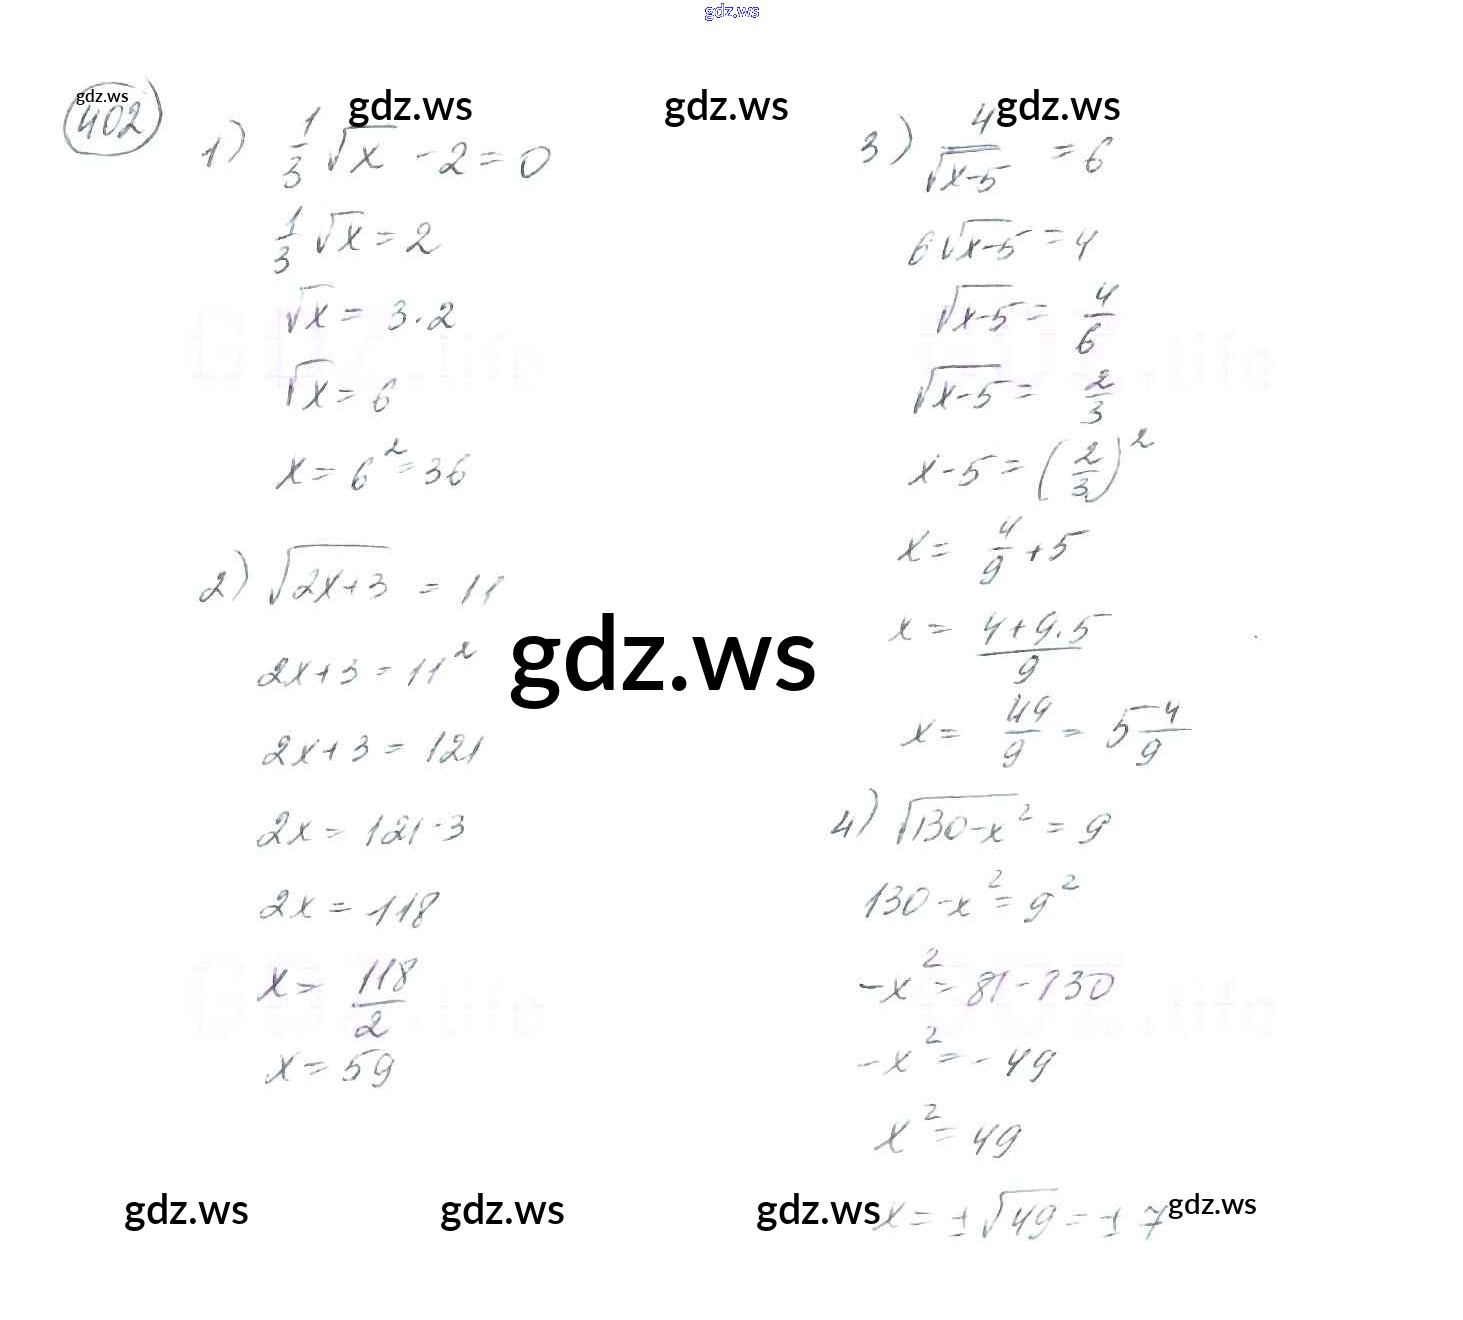 gdz.ws
gdz.ws gdz.ws gdz.ws gdz.ws
402
1) 1/3 √x - 2 = 0
1/3 √x = 2
√x = 3·2
√x = 6
x = 6² = 36
2) √(2x+3) = 11
2x+3 = 11²
2x+3 = 121
2x = 121-3
2x = 118
x = 118/2
x = 59
3) 4/√(x-5) = 6
6√(x-5) = 4
√(x-5) = 4/6
√(x-5) = 2/3
x-5 = (2/3)²
x = 4/9 + 5
x = (4+9·5)/9
x = 49/9 = 5 4/9
4) √(130-x²) = 9
130-x² = 9²
-x² = 81-130
-x² = -49
x² = 49
x = ±√49 = ±7
gdz.ws
gdz.ws gdz.ws gdz.ws gdz.ws
GDZ.life GDZ.life
GDZ.life GDZ.life